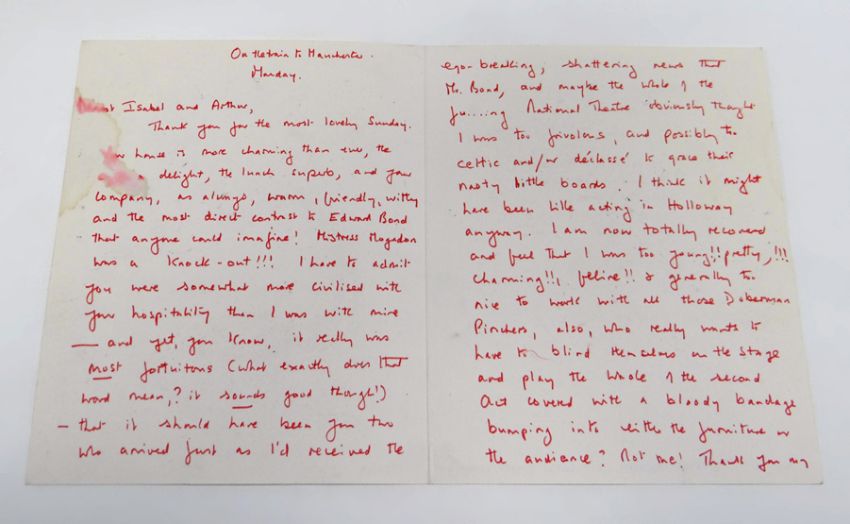 On the train to Manchester.
Monday.
Isabel and Arthur,
Thank you for the most lovely Sunday.
house is more charming than ever, the
delight, the lunch superb, and your
company, as always, warm, friendly, witty
and the most direct contrast to Edward Bond
that anyone could imagine! Mistress Mogadon
was a knock-out!!! I have to admit
you were somewhat more civilised with
your hospitality than I was with mine
— and yet, you know, it really was
most fortuitous (what exactly does that
word mean,? it sounds good though!)
— that it should have been you two
who arrived just as I'd received the
ego-breaking, shattering news that
Mr. Bond, and maybe the whole of the
fu.....ing National Theatre obviously thought
I was too frivolous, and possibly too
celtic and/or déclassé to grace their
nasty little boards. I think it might
have been like acting in Holloway
anyway. I am now totally recovered
and feel that I was too young!! pretty,!!!
charming!!, feline!! & generally too
nice to work with all those Doberman
Pinchers, also, who really wants to
have to blind themselves on the stage
and play the whole of the second
Act covered with a bloody bandage
bumping into either the furniture or
the audience? Not me! Thank you my